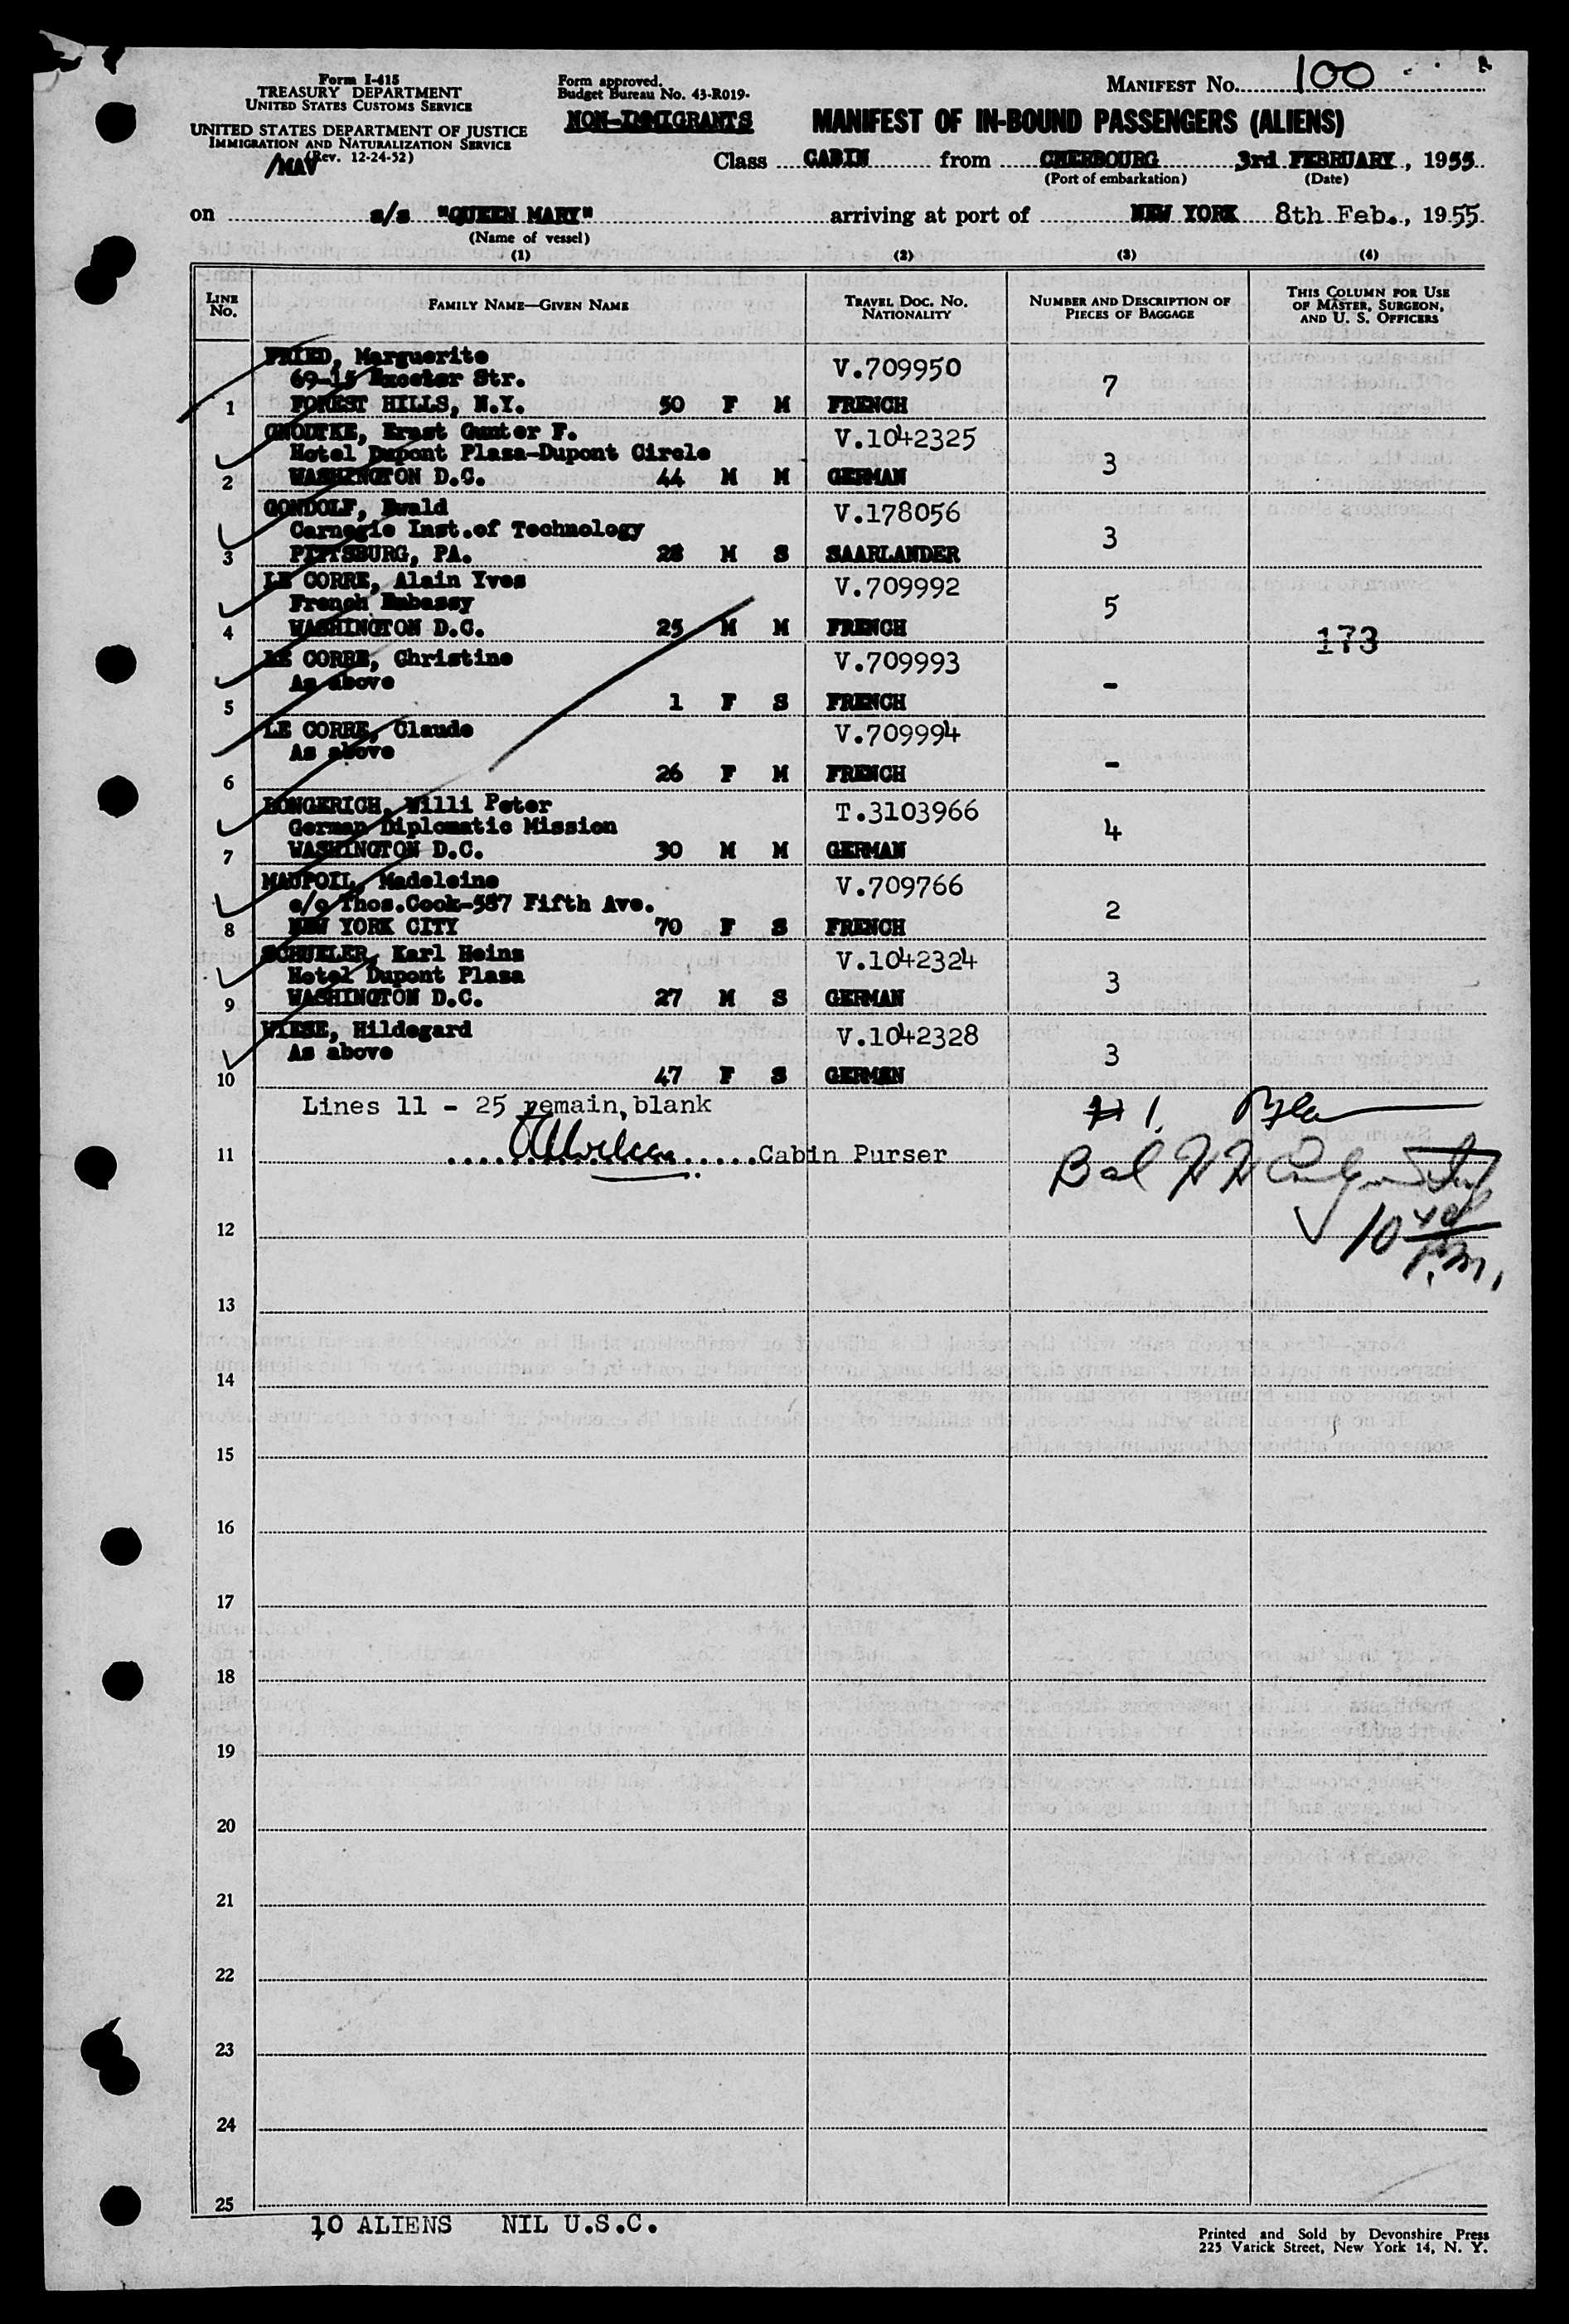 Form I-415
TREASURY DEPARTMENT
UNITED STATES CUSTOMS SERVICE
UNITED STATES DEPARTMENT OF JUSTICE
IMMIGRATION AND NATURALIZATION SERVICE
(Rev. 12-24-52)
/MAV
Form approved.
Budget Bureau No. 43-R019-
NON-IMMIGRANTS
MANIFEST No. 100
MANIFEST OF IN-BOUND PASSENGERS (ALIENS)
Class CABIN from CHERBOURG 3rd FEBRUARY, 1955
(Port of embarkation) (Date)
on s/s "QUEEN MARY" arriving at port of NEW YORK 8th Feb., 1955
(Name of vessel)
(1) (2) (3) (4)
LINE No. FAMILY NAME—GIVEN NAME TRAVEL DOC. No. NATIONALITY NUMBER AND DESCRIPTION OF PIECES OF BAGGAGE THIS COLUMN FOR USE OF MASTER, SURGEON, AND U. S. OFFICERS
FRIED, Marguerite V.709950
69-15 Exeter Str. 7
1 FOREST HILLS, N.Y. 50 F M FRENCH
GNODTKE, Ernst Gunter F. V.1042325
Hotel Dupont Plaza-Dupont Circle 3
2 WASHINGTON D.C. 44 M M GERMAN
GONDOLF, Ewald V.178056
Carnegie Inst.of Technology 3
3 PITTSBURG, PA. 28 M S SAARLANDER
LE CORRE, Alain Yves V.709992
French Embassy 5
4 WASHINGTON D.C. 25 M M FRENCH 173
LE CORRE, Christine V.709993
As above -
5 1 F S FRENCH
LE CORRE, Claude V.709994
As above -
6 26 F M FRENCH
LONGERICH, Willi Peter T.3103966
German Diplomatic Mission 4
7 WASHINGTON D.C. 30 M M GERMAN
MAUPOIL, Madeleine V.709766
c/o Thos.Cook-587 Fifth Ave. 2
8 NEW YORK CITY 70 F S FRENCH
SCHUELER, Karl Heinz V.1042324
Hotel Dupont Plaza 3
9 WASHINGTON D.C. 27 M S GERMAN
WIESE, Hildegard V.1042328
As above 3
10 47 F S GERMAN
Lines 11 - 25 remain blank
11 Cabin Purser
Bal
12 10 40 P.M.
13
14
15
16
17
18
19
20
21
22
23
24
25
10 ALIENS NIL U.S.C.
Printed and Sold by Devonshire Press
225 Varick Street, New York 14, N. Y.